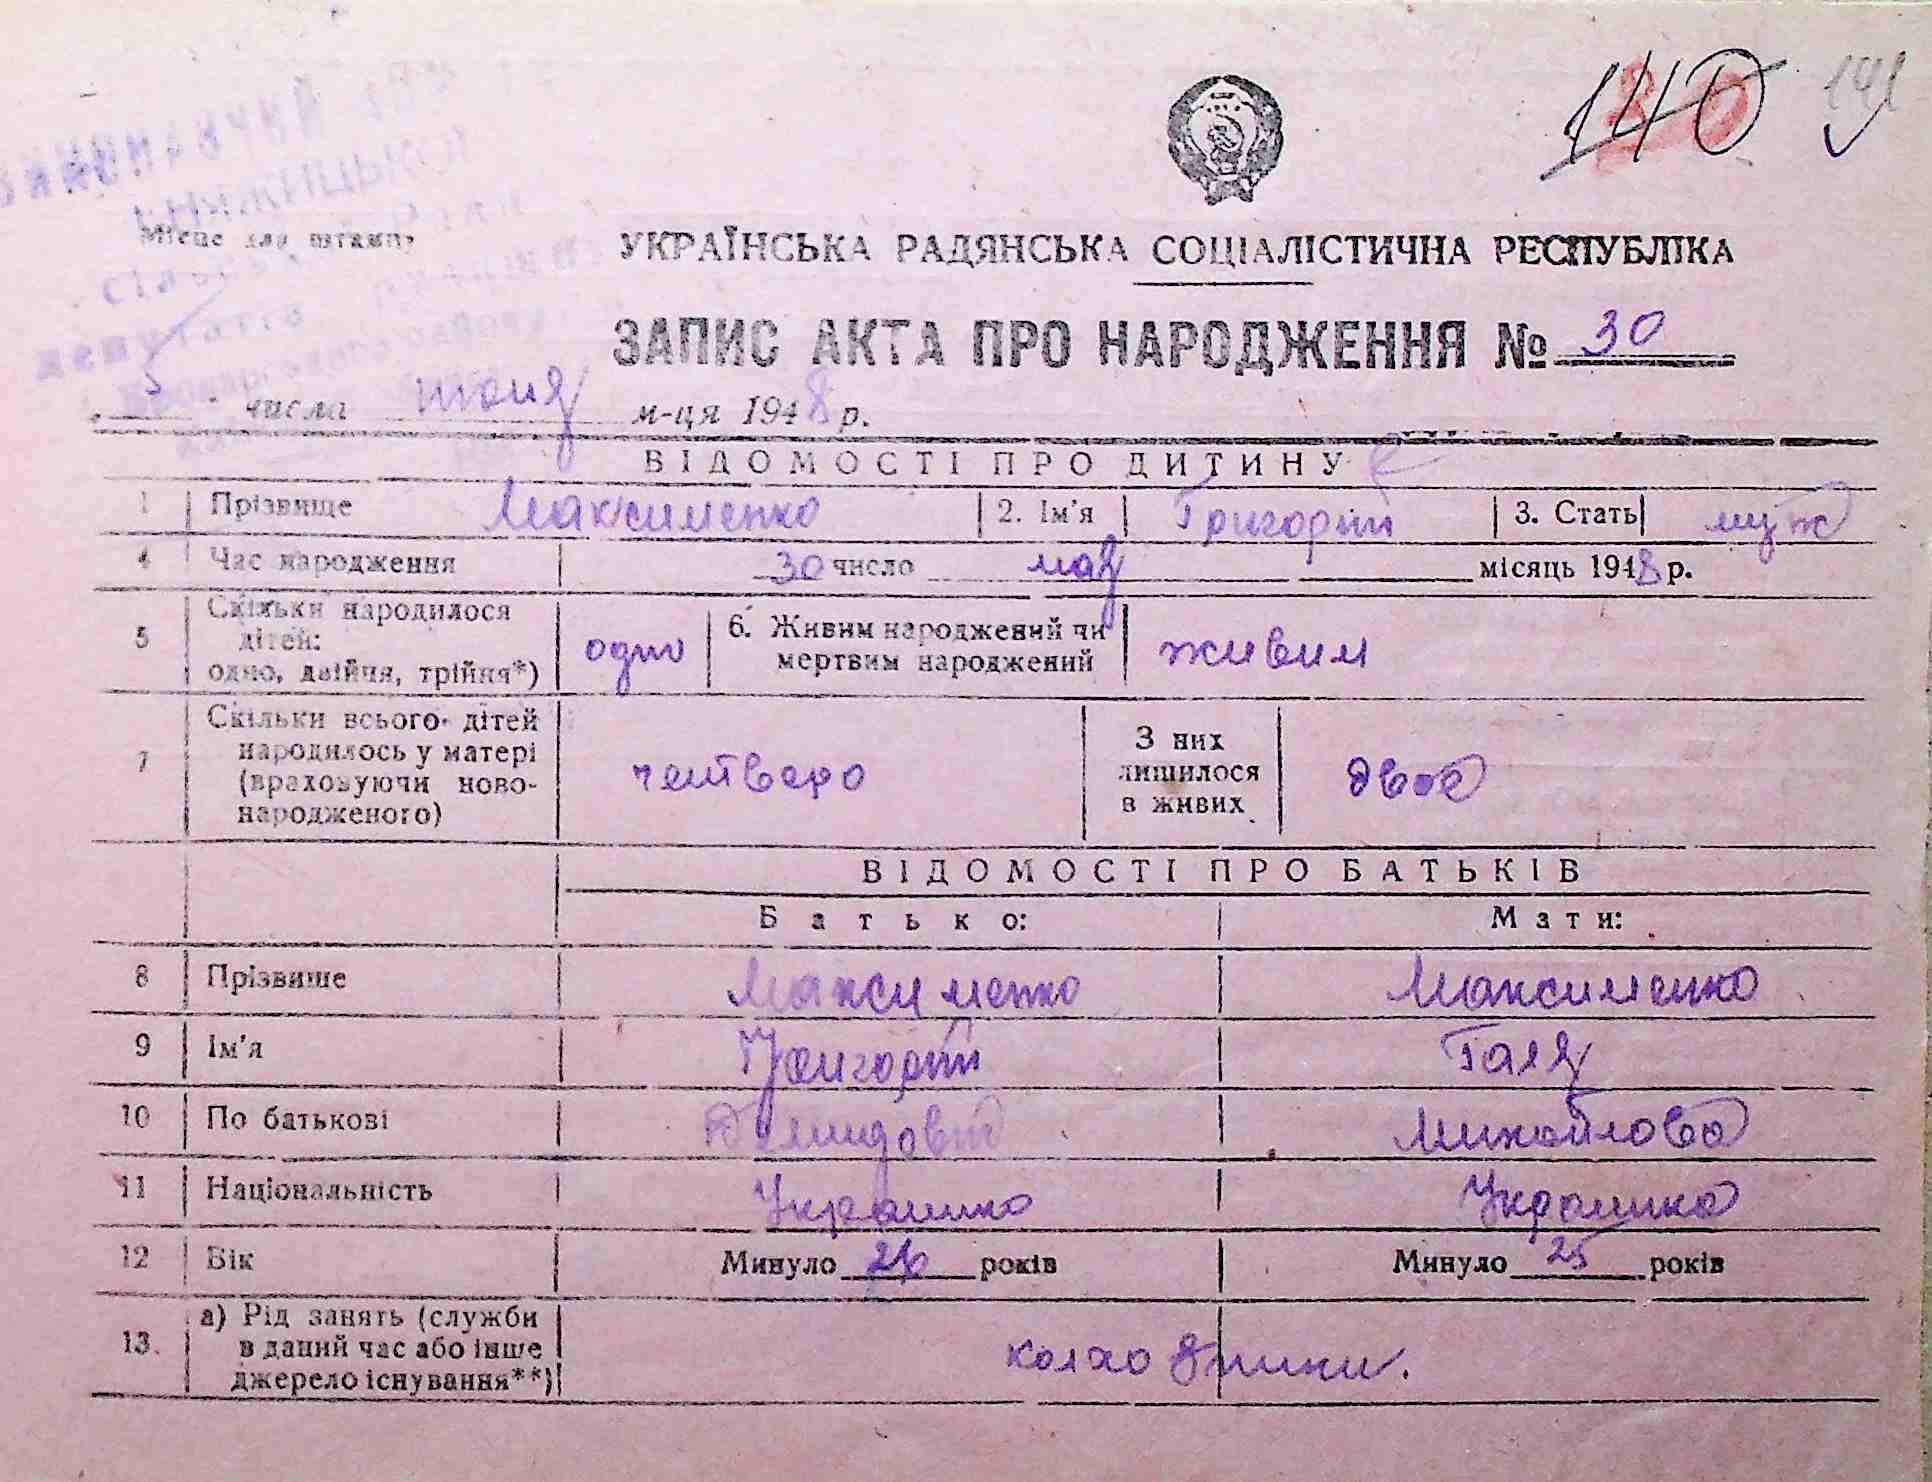 140 141
Місце для штампу
УКРАЇНСЬКА РАДЯНСЬКА СОЦІАЛІСТИЧНА РЕСПУБЛІКА
ЗАПИС АКТА ПРО НАРОДЖЕННЯ № 30
5 числа июня м-ця 1948 р.
ВІДОМОСТІ ПРО ДИТИНУ
1 Прізвище Максименко 2. Ім'я Григорій 3. Стать муж
4 Час народження 30 число мая місяць 1948 р.
5 Скільки народилося дітей: одно, двійня, трійня*) одно 6. Живим народжений чи мертвим народжений живим
7 Скільки всього дітей народилось у матері (враховуючи новонародженого) четверо З них лишилося в живих двоє
ВІДОМОСТІ ПРО БАТЬКІВ
Батько: Мати:
8 Прізвище Максименко Максименко
9 Ім'я Григорій Галя
10 По батькові Демидович Михайловна
11 Національність Украинка
12 Вік Минуло 26 років Минуло 25 років
13. а) Рід занять (служби в даний час або інше джерело існування**) колхозники.